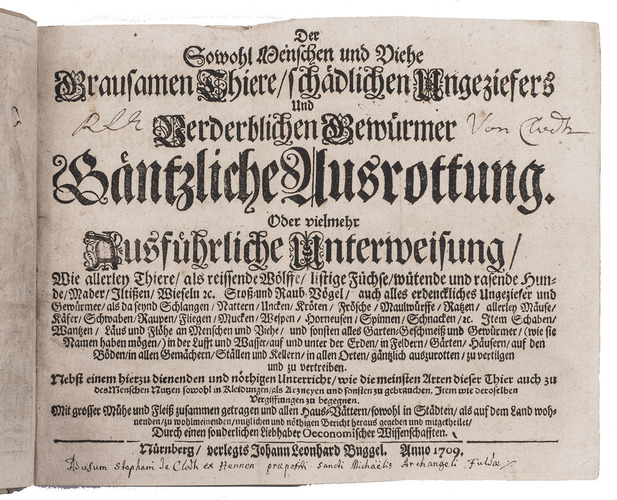 Der
Sowohl Menschen und Viehe
Grausamen Thiere/schädlichen Ungeziefers
Und
Verderblichen Gewürmer Von
Gäntzliche Ausrottung.
Oder vielmehr
Ausführliche Unterweisung/
Wie allerley Thiere/ als reissende Wölffe/ listige Füchse/wütende und rasende Hun-
de/Mader/Iltißen/ Wieseln ꝛc. Stoß-und Raub-Vögel/ auch alles erdenckliches Ungeziefer und
Gewürmer/als da seynd Schlangen/ Nattern/ Uncken/ Kröten/ Frösche/ Maulwürffe/ Ratzen/ allerley Mäuse/
Käfer/ Schwaben/ Raupen/ Fliegen/ Mucken/ Wespen/ Horneusen/ Spinnen/ Schnacken/ ꝛc. Item Schaben/
Wantzen/ Läus und Flöhe an Menschen und Viehe/ und sonsten alles Garten-Geschmeiß und Gewürmer/ (wie sie
Namen haben mögen/) in der Lufft und Wasser/auf und unter der Erden/ in Feldern/ Gärten/ Häusern/ auf den
Böden/in allen Gemächern/ Ställen und Kellern/ in allen Orten/ gäntzlich auszurotten/ zu vertilgen
und zu vertreiben.
Nebst einem hierzu dienenden und nöthigen Unterricht/ wie die meinsten Arten dieser Thier auch zu
des Menschen Nutzen sowohl in Kleidungen/als Artzneyen und sonsten zu gebrauchen. Item wie deroselben
Vergifftungen zu begegnen.
Mit grosser Mühe und Fleiß zusammen getragen und allen Haus-Vättern/sowohl in Städten/ als auf dem Land woh-
nenden/ zu wohlmeinenden/nützlichen und nöthigen Bericht heraus gegeben und mitgetheilet/
Durch einen sonderlichen Liebhaber Oeconomischer Wissenschafften.
Nürnberg/ verlegts Johann Leonhard Buggel. Anno 1709.
Ad usum Stephani de Cloth ex Hennen præpositi sancti Michaëlis Archangeli Fuldæ